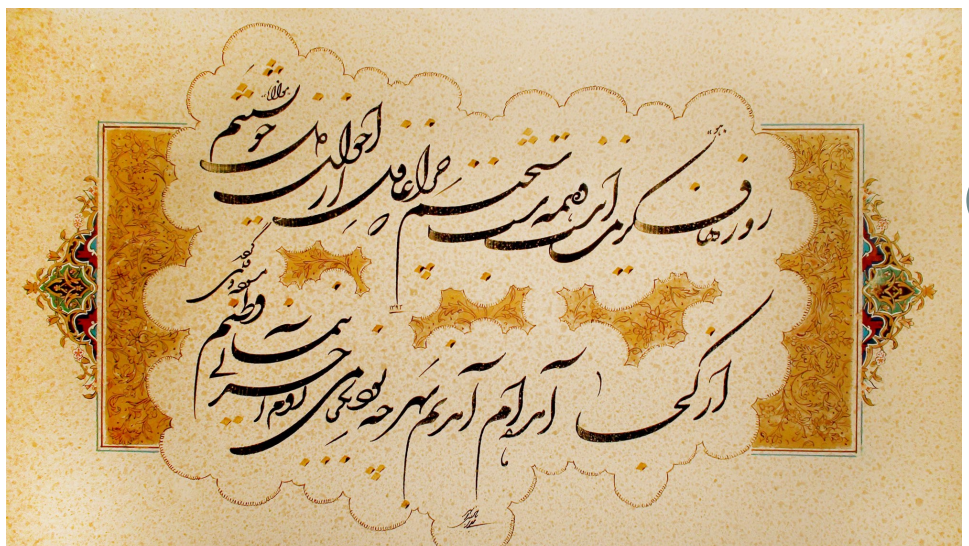 روزها فکر من اینست و همه شب سخنم
که چرا غافل از احوال دل خویشتنم
از کجا آمده‌ام آمدنم بهر چه بود
به کجا می روم آخر ننمایی وطنم